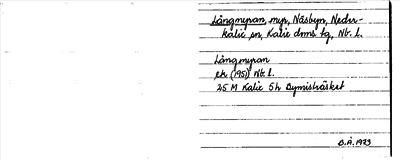 Långmyran, myr, Näsbyn, Neder-
kalix sn, Kalix dms tg, Nb. l.
Långmyran
ek. (1951) Nb. l.
25 M Kalix 5h Bymisträsket
B.Å. 1973